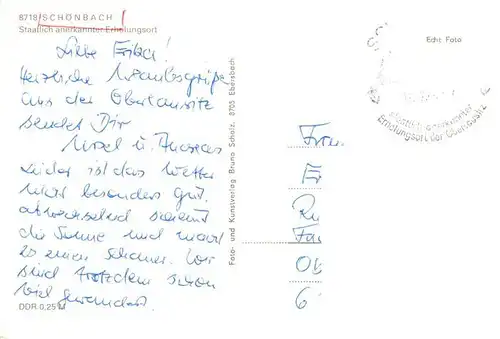 8718 SCHÖNBACH
Staatlich anerkannter Erholungsort
Liebe Erika!
Herzliche Urlaubsgrüße
aus der Oberlausitz
sendet Dir
Ursel u. Andreas
Leider ist das Wetter
nicht besonders gut.
abwechselnd scheint
die Sonne und mal
ein Schauer. Wir
sind trotzdem schon
viel gewandert.
DDR 0,25 M
Foto- und Kunstverlag Bruno Scholz, 8705 Ebersbach
Echt Foto
staatlich anerkannter
Erholungsort der Oberlausitz
Frau
Er
Ru
Ob
6